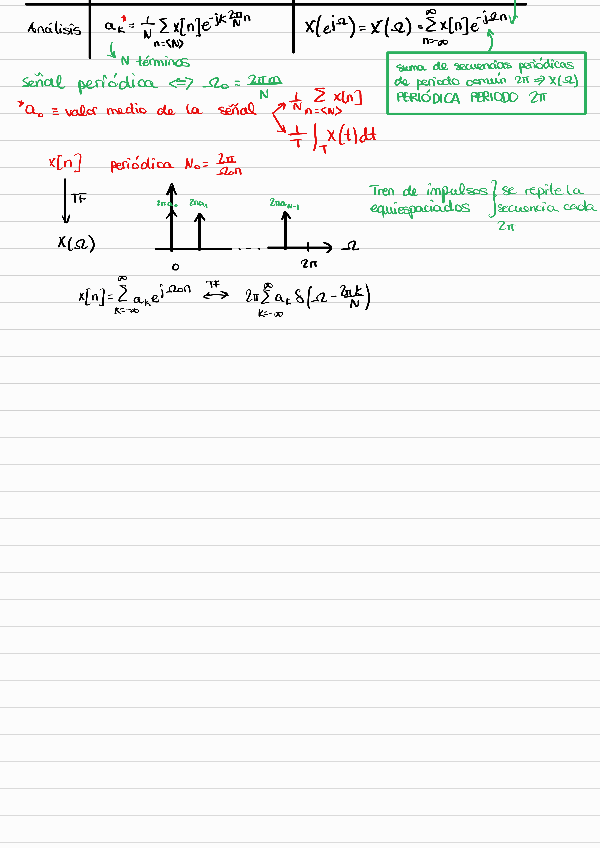 Análisis
a_k* = 1/N Σ_{n=<N>} x[n] e^{-jk 2π/N n}
X(e^{jΩ}) = X(Ω) = Σ_{n=-∞}^{∞} x[n] e^{-jΩn}
↳ N términos
suma de secuencias periódicas
de periodo común 2π ⇒ X(Ω)
PERIÓDICA PERIODO 2π
señal periódica ⟺ Ω₀ = 2πm/N
*a₀ ≡ valor medio de la señal
1/N Σ_{n=<N>} x[n]
1/T ∫_T x(t)dt
x[n] periódica N₀ = 2π/Ω₀ n
TF
X(Ω)
2πa₀ 2πa₁ 2πa_{N-1}
Ω
0 2π
Tren de impulsos } se repite la
equiespaciados } secuencia cada
2π
x[n] = Σ_{k=-∞}^{∞} a_k e^{jΩ₀n} ⟷^{TF} 2π Σ_{k=-∞}^{∞} a_k δ(Ω - 2πk/N)